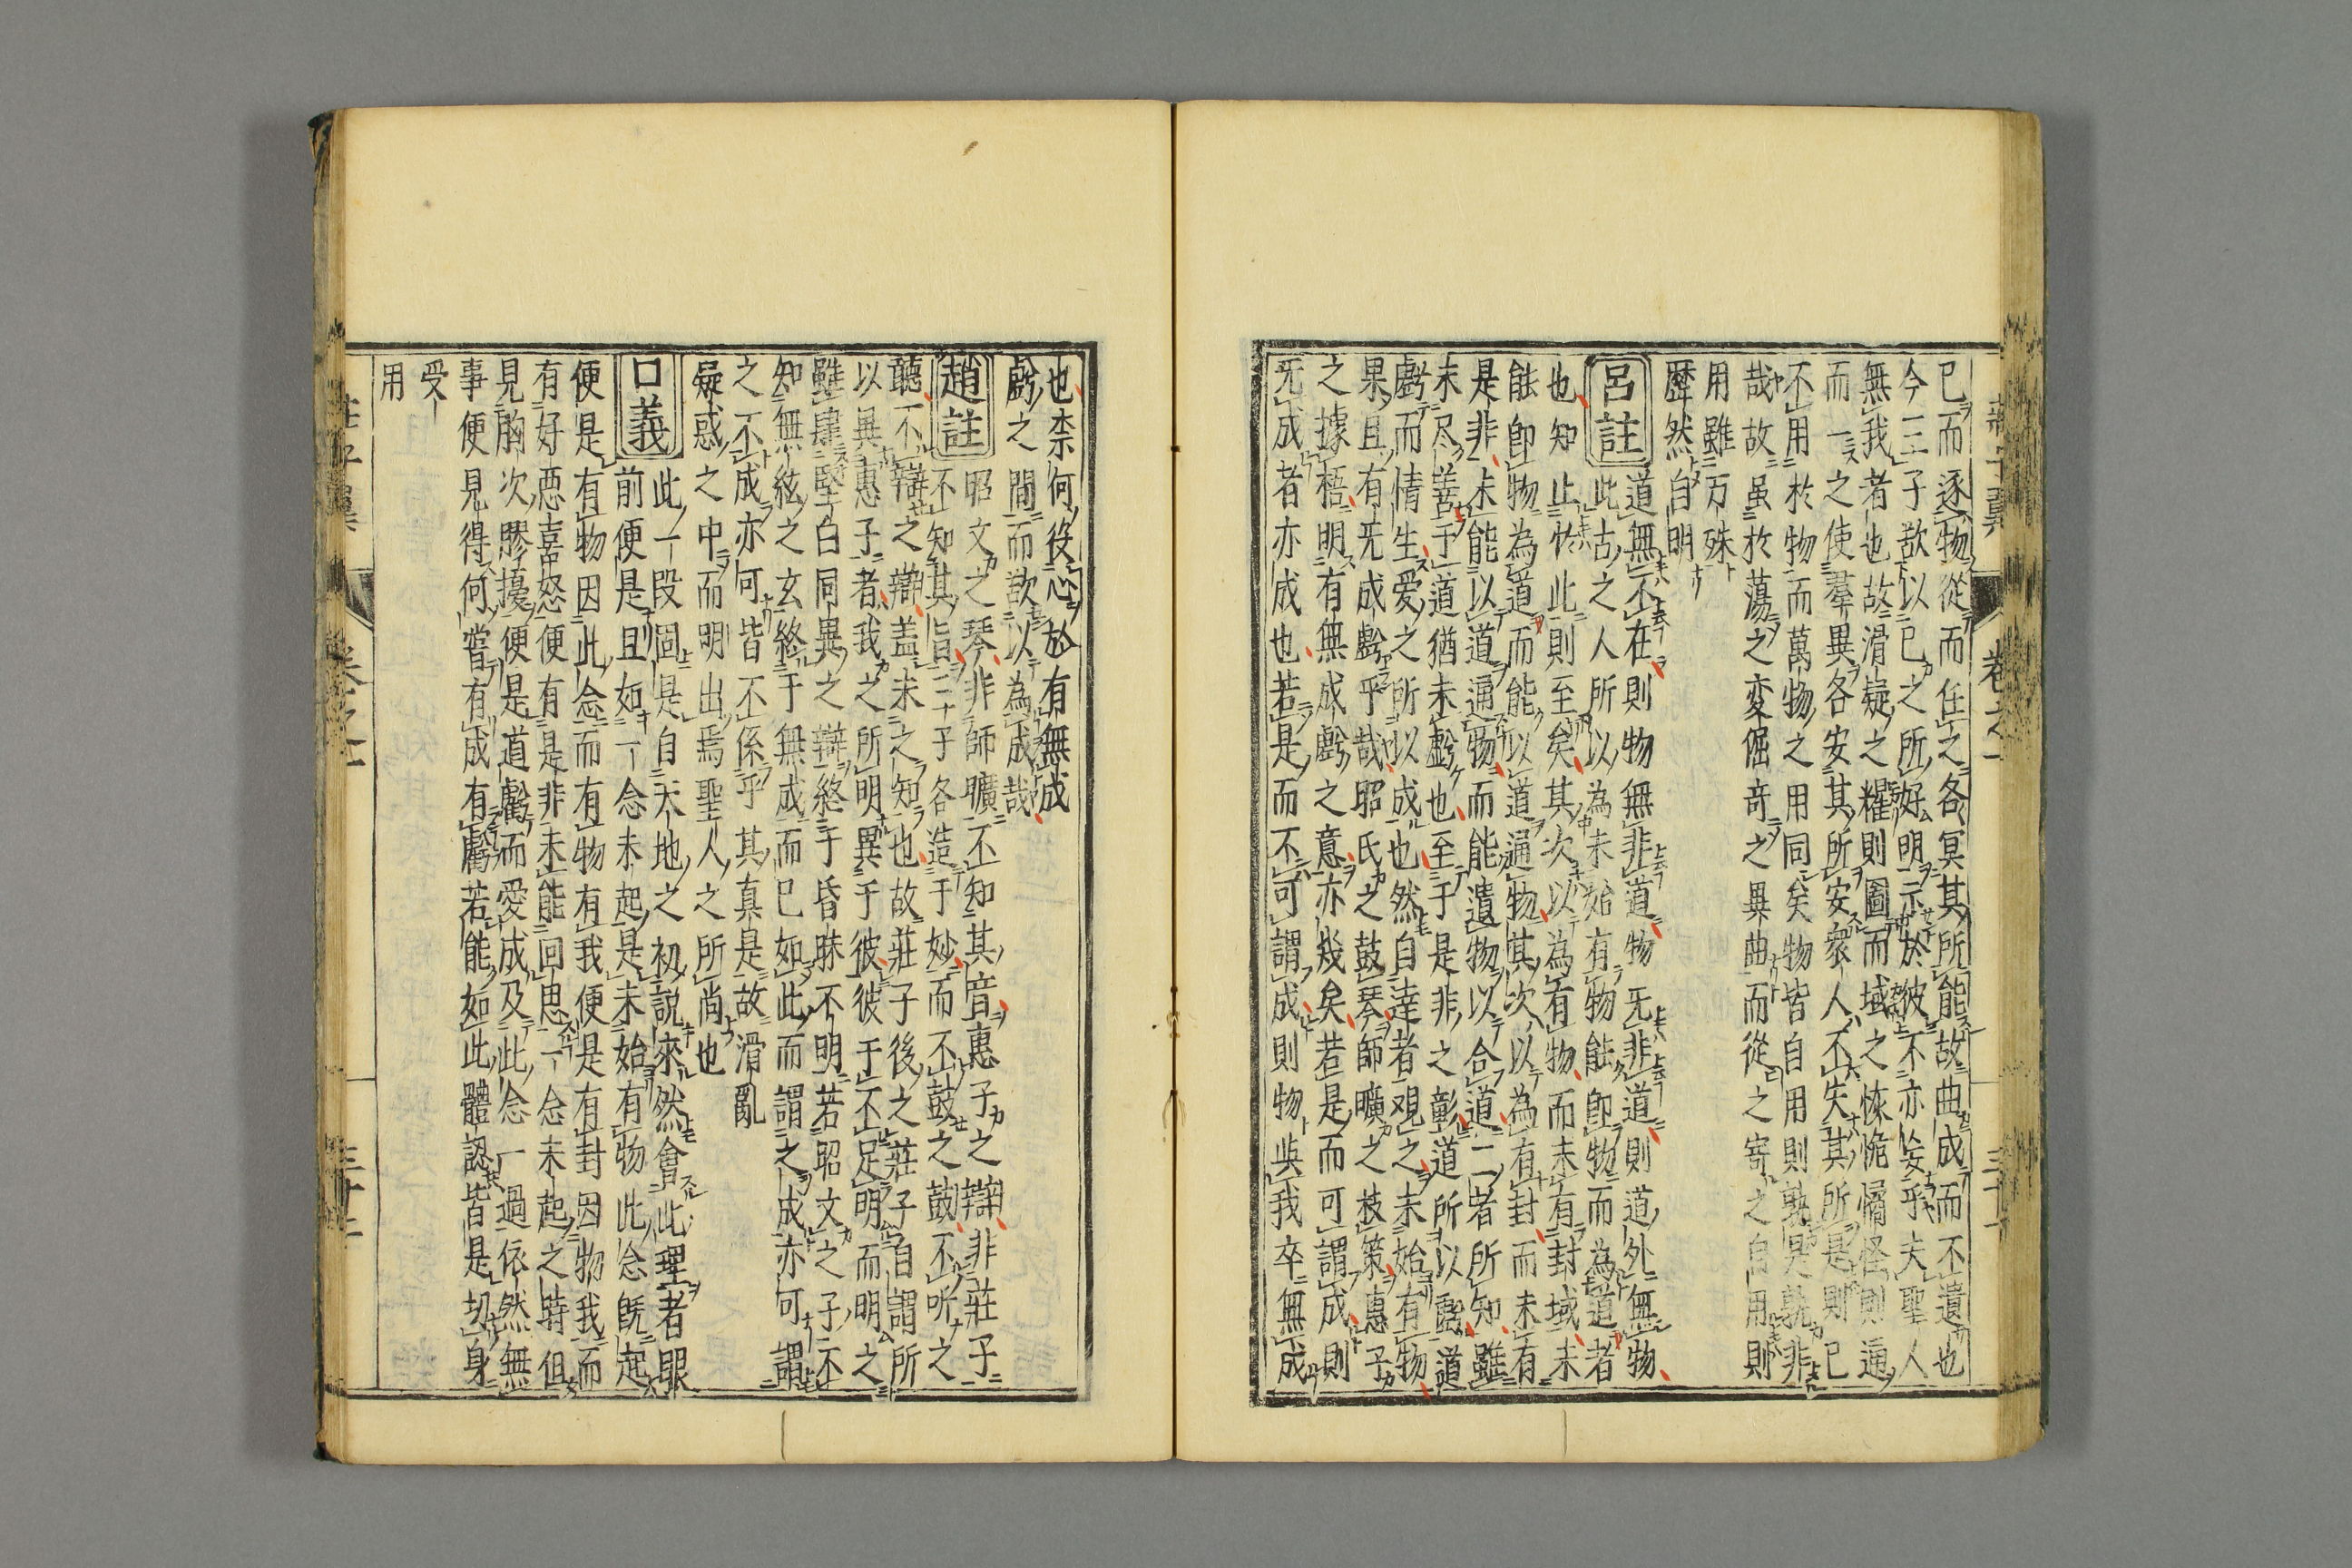 已而逐物從而任之各冥其所能故曲成而不遺也
今三子欲以已之所好明示於彼不亦妄乎夫聖人
無我者也故滑疑之耀則圖而域之恢恑憰怪則通
而一之使羣異各安其所安衆人不失其所是則已
不用於物而萬物之用同矣物皆自用則孰是孰非
哉故虽於蕩之变倔奇之異曲而從之寄之自用則
用雖万殊
歷然自明
呂註
道無不在則物無非道物无非道則道外無物
此古之人所以為未始有物能卽物而為道者
也知止於此則至矣其次以為有物而未有封域未
能卽物為道而能以道通物其次以為有封而未有
是非未能以道通物而能遺物以合道二者所知雖
未尽善于道猶未虧也至于是非之彰道所以虧道
虧而情生爱之所以成也然自達者覌之未始有物
果且有无成虧乎哉昭氏之鼓琴師曠之枝策惠子
之據梧明有無成虧之意亦幾矣若是而可謂成則
无成者亦成也若是而不可謂成則物與我卒無成
也柰何役心於有無成
虧之間而欲以為成哉
趙註
昭文之琴非師曠不知其音惠子之辯非莊子
不知其旨三子各造于妙而不鼓之鼓不听之
聽不辯之辯盖未之知也故莊子後之莊子自謂所
以異惠子者我之所明異于彼彼于不足明而明之
雖肆堅白同異之辯終于昏昧不明若昭文之子不
知無絃之玄終于無成而已如此而謂之成亦可謂
之不成亦可皆不係乎其真是故滑亂
疑惑之中而明出焉聖人之所尚也
口義
此一段固是自天地之初說來然會此理者眼
前便是且如一念未起是未始有物此念旣起
便是有物因此念而有物有我便是有封因物我而
有好惡喜怒便有是非未能回思一念未起之時但
見胸次膠擾便是道虧而愛成及此念一過依然無
事便見得何嘗有成有虧若能如此體認皆是切身
受
用
莊子翼 卷之一 三十一